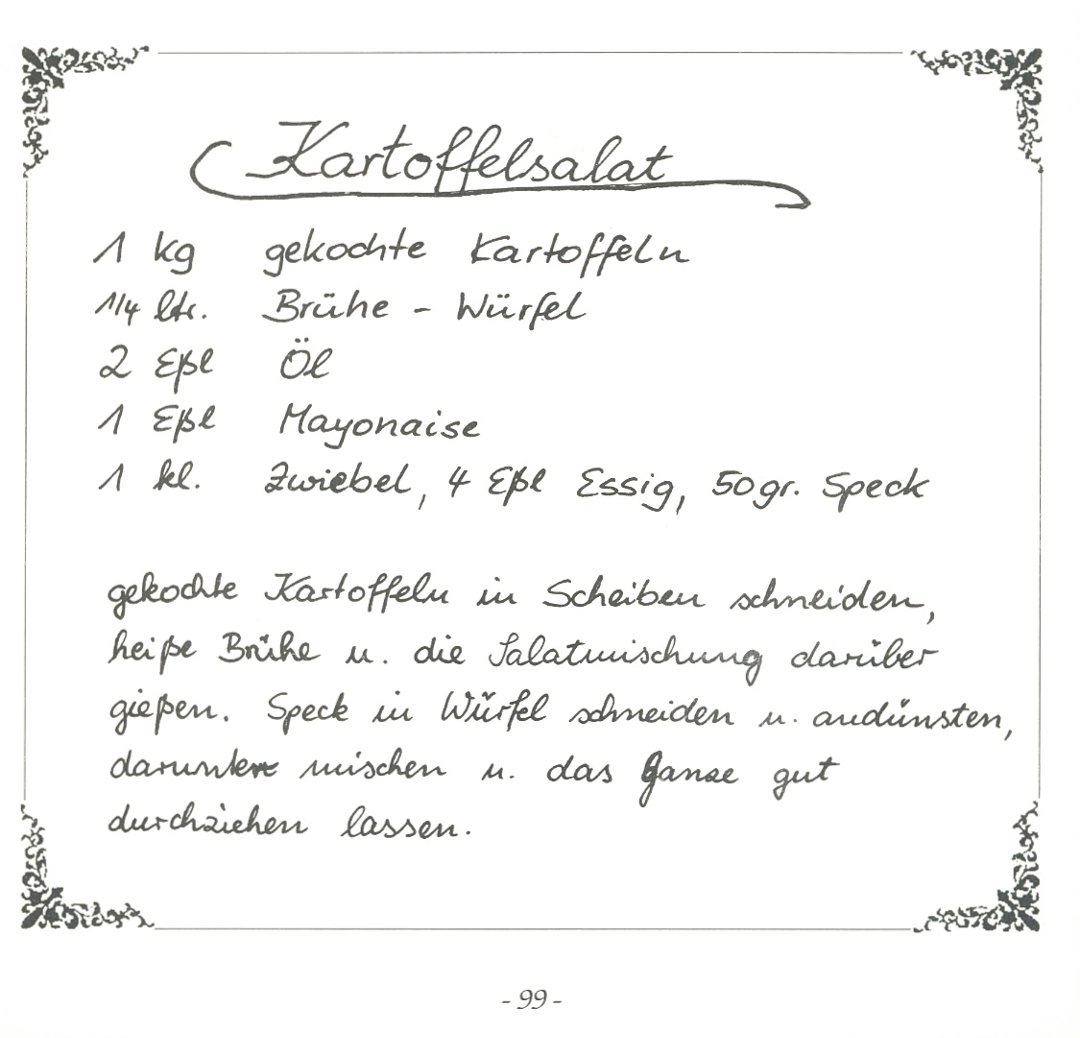 Kartoffelsalat
1 kg gekochte Kartoffeln
1/4 ltr. Brühe - Würfel
2 Eßl Öl
1 Eßl Mayonaise
1 kl. Zwiebel, 4 Eßl Essig, 50gr. Speck
gekochte Kartoffeln in Scheiben schneiden,
heiße Brühe u. die Salatmischung darüber
gießen. Speck in Würfel schneiden u. andünsten,
darunter mischen u. das Ganze gut
durchziehen lassen.
- 99 -